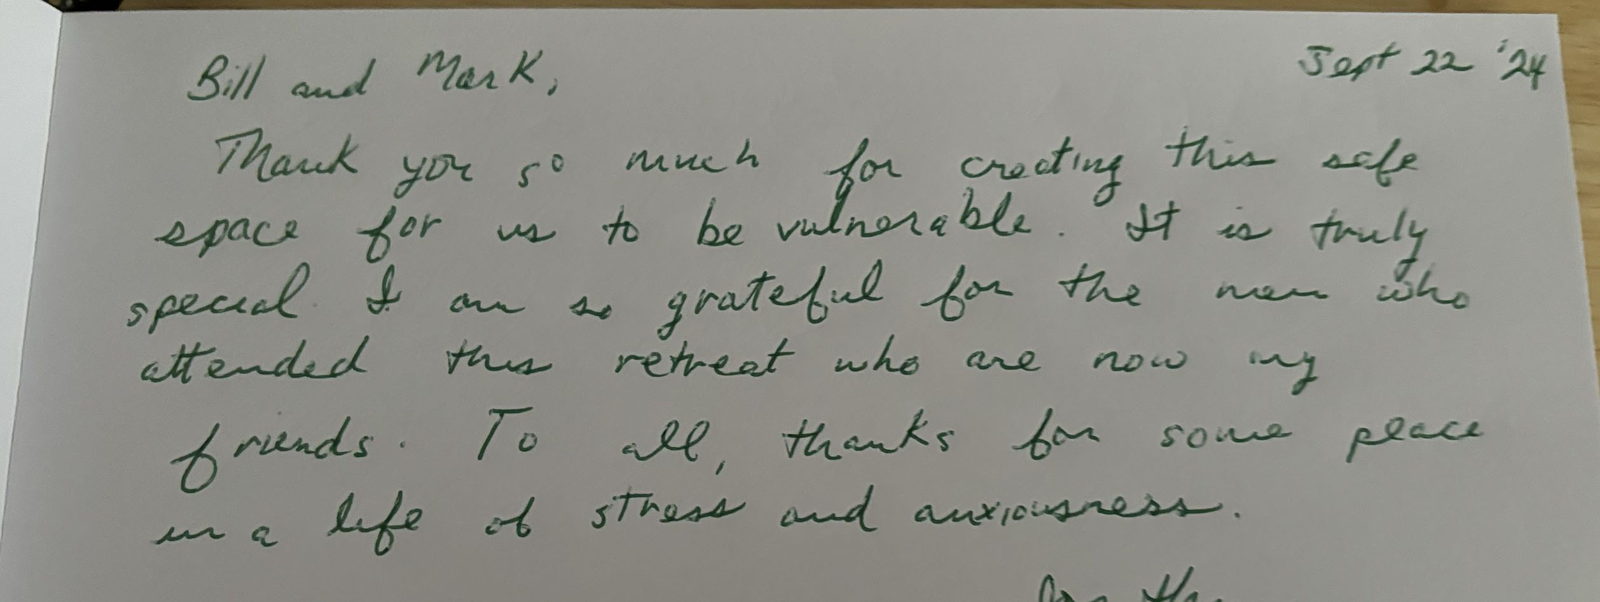 Sept 22 '24
Bill and Mark,
Thank you so much for creating this safe
space for us to be vulnerable. It is truly
special. I am so grateful for the men who
attended this retreat who are now my
friends. To all, thanks for some peace
in a life of stress and anxiousness.